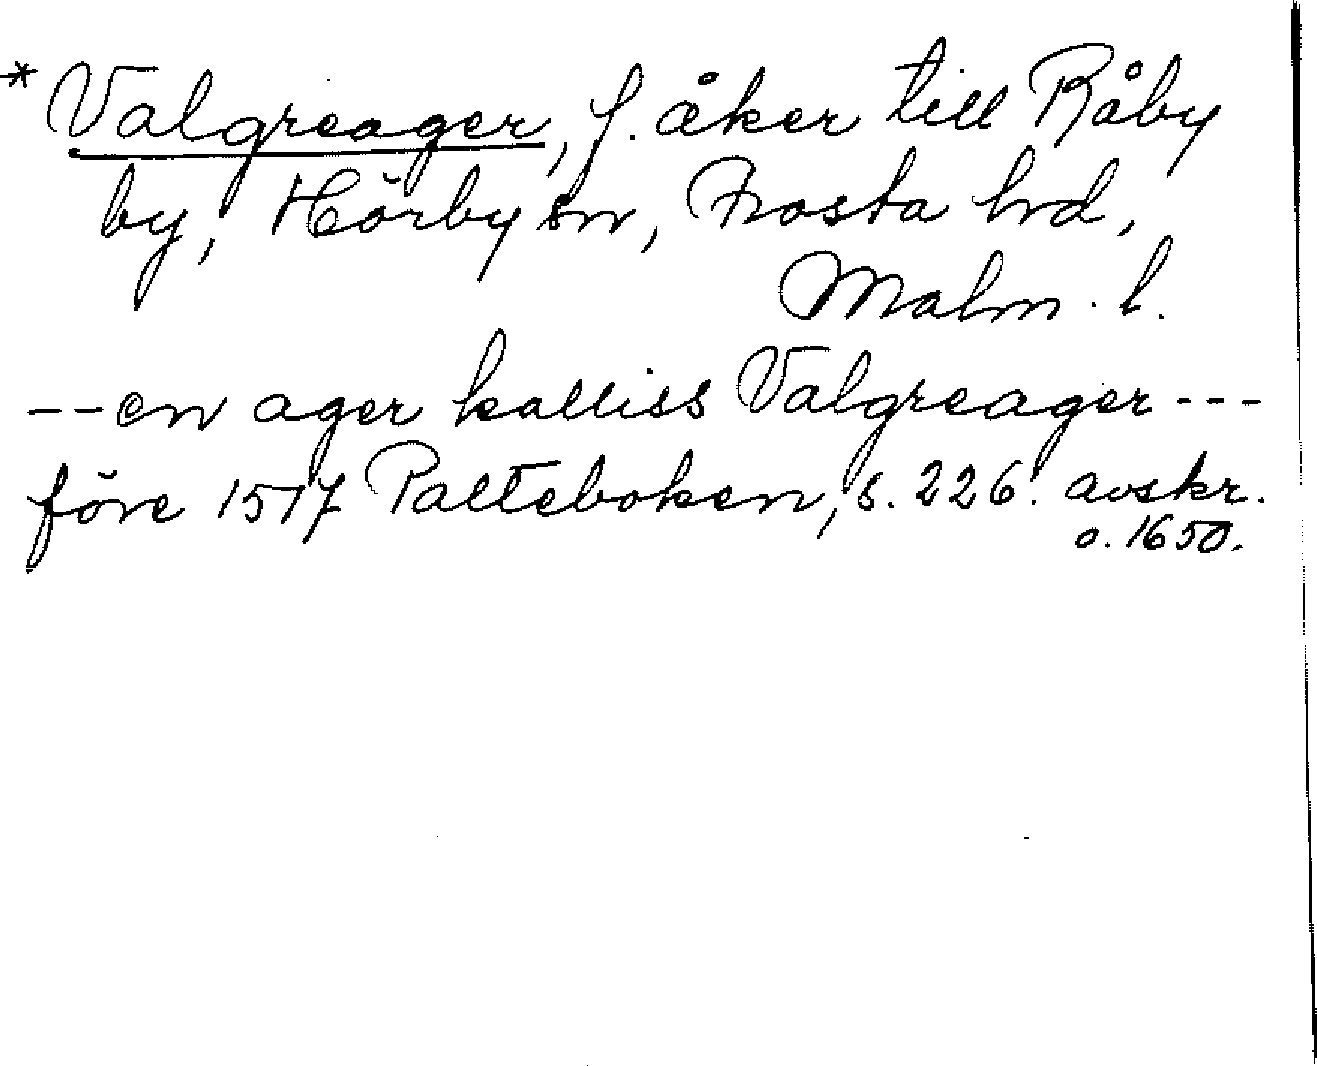 * Valgreager, f. åker till Råby
by, Hörby sn, Frosta hd,
Malm. l.
-- en ager kalliss Valgreager ---
före 1517 Palteboken, s. 226. avskr.
o. 1650.